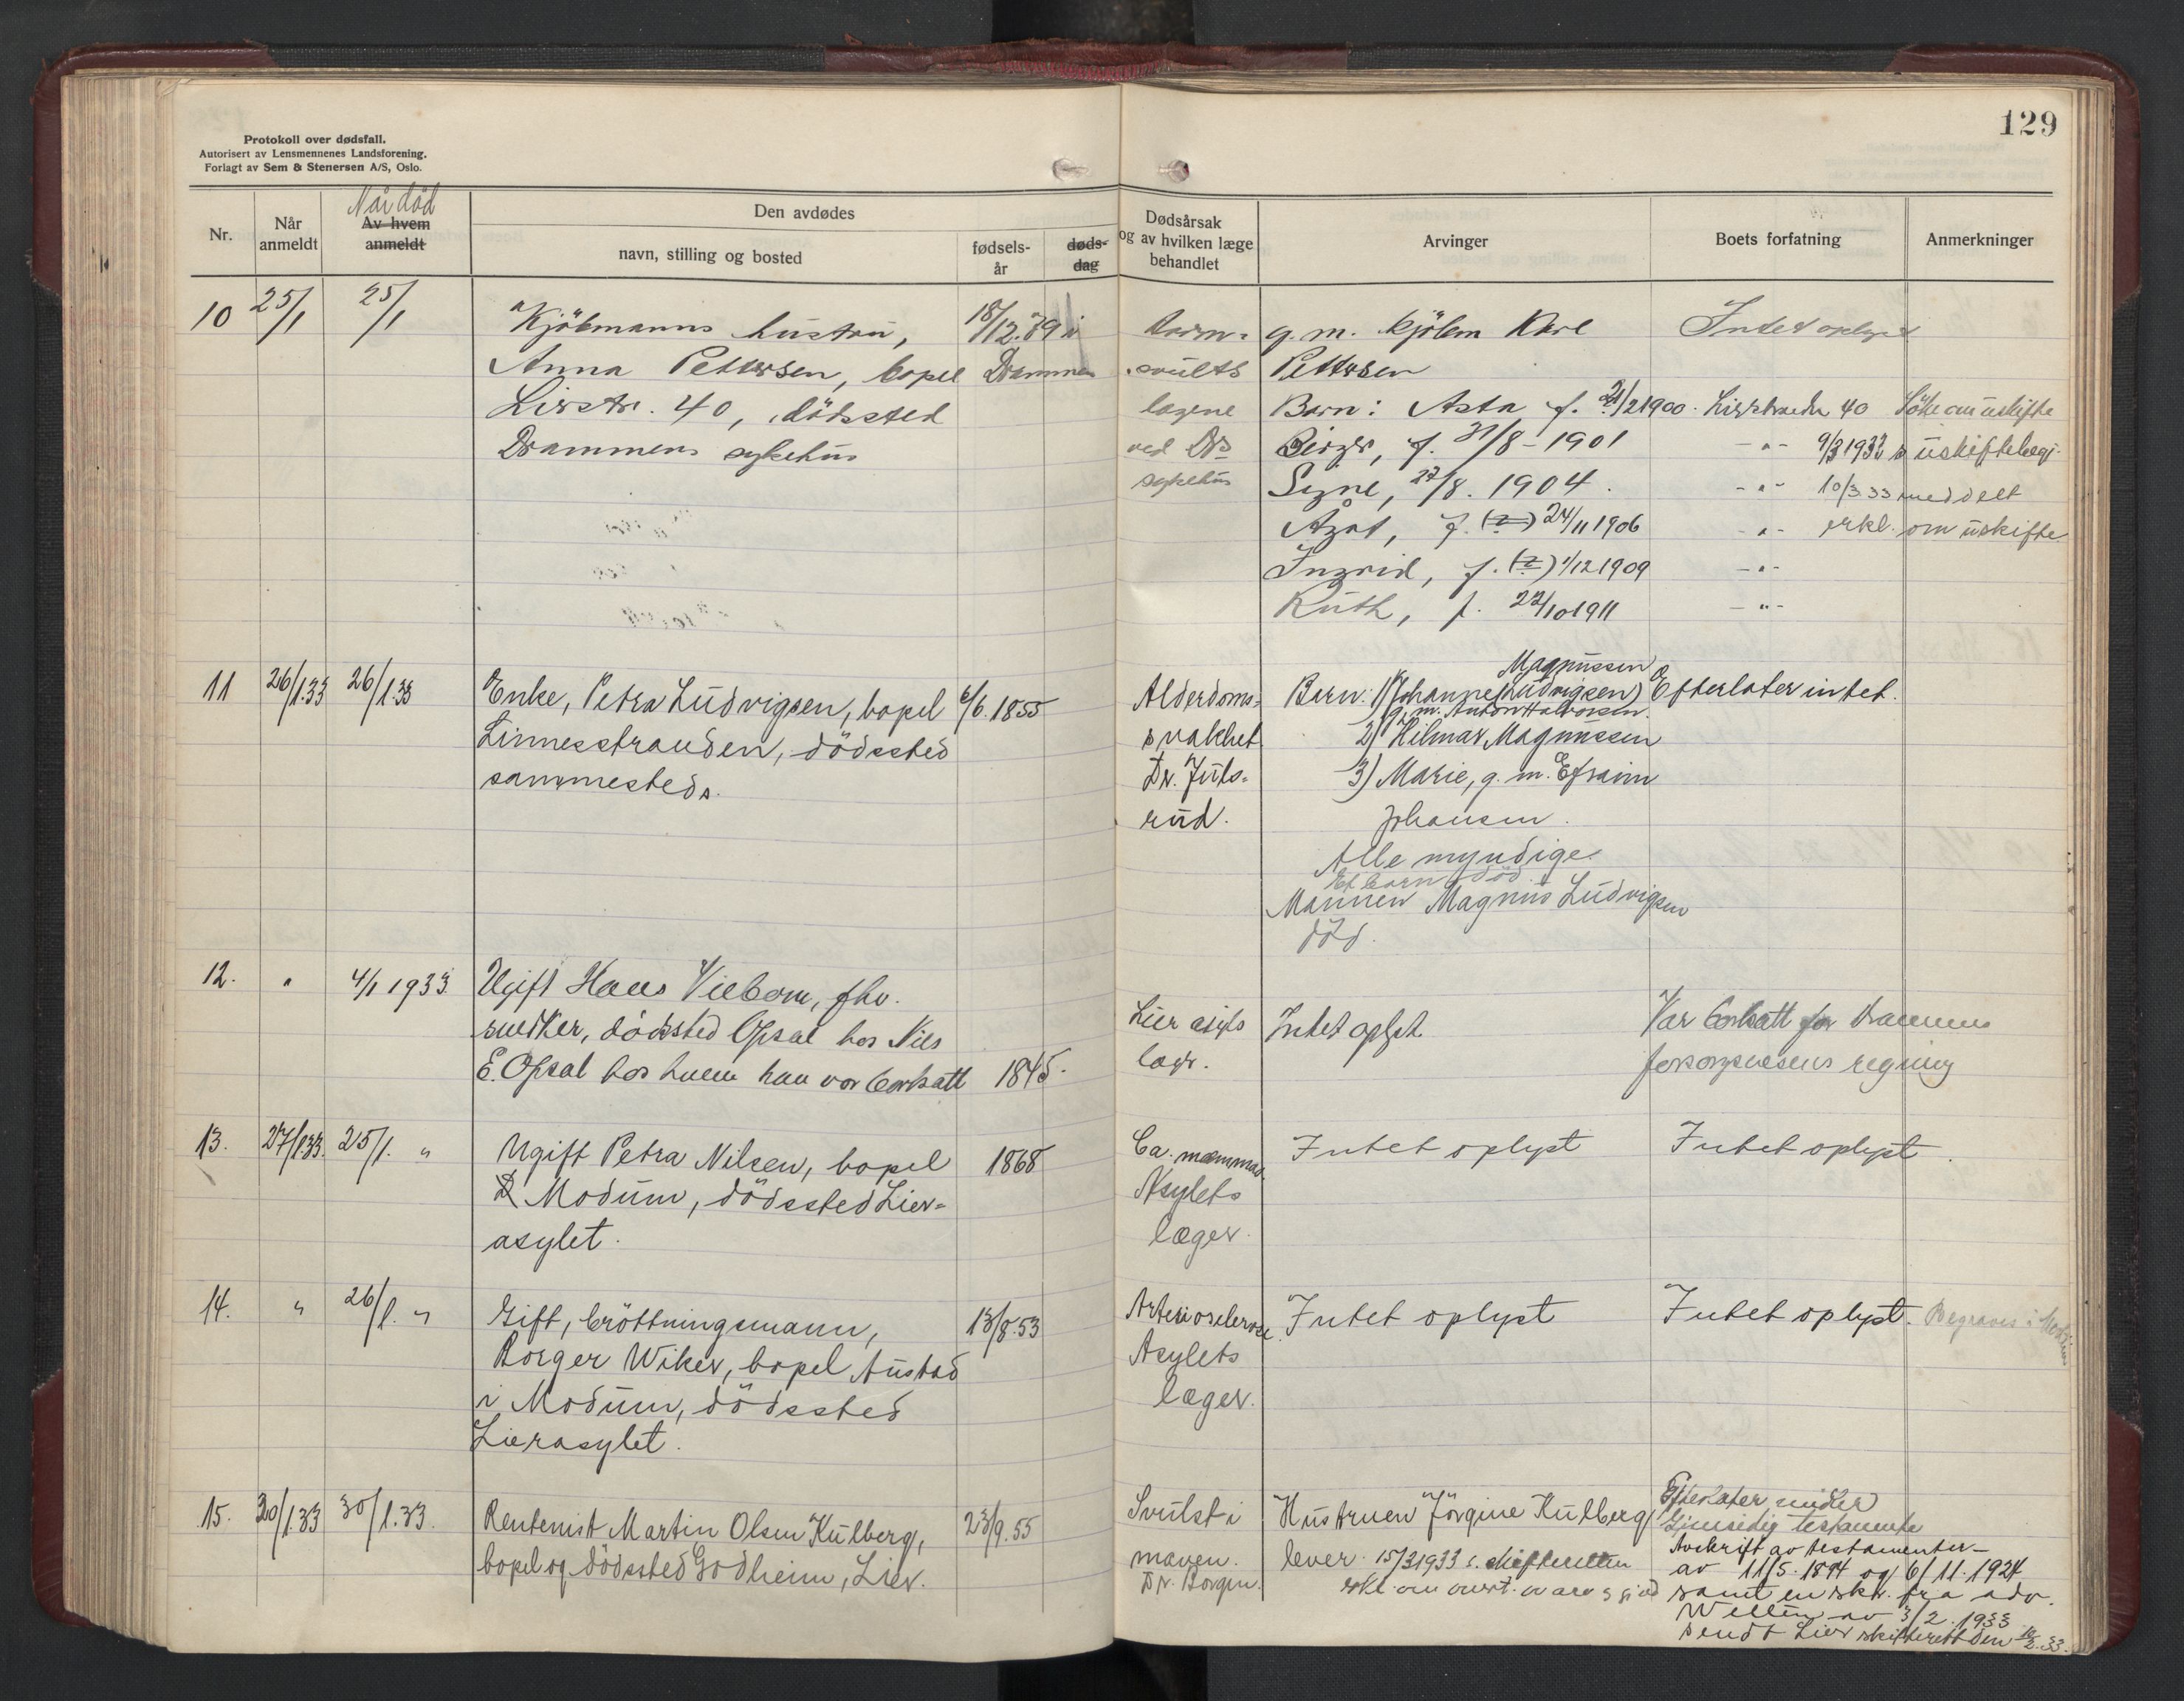 129
Protokoll over dødsfall.
Autorisert av Lensmennenes Landsforening.
Forlagt av Sem & Stenersen A/S, Oslo.
Nr.
Når anmeldt
Når död
Av hvem anmeldt
Den avdødes
navn, stilling og bosted
fødsels-år
døds-dag
Dødsårsak og av hvilken læge behandlet
Arvinger
Boets forfatning
Anmerkninger
10 25/1 25/1
Kjöbmanns hustru, 18/12.79 i
Anna Pettersen, bopel Drammen
Lierstr. 40, dödssted
Drammens sykehus
tarm-
svulst
lægene
ved Drs
sykehus
g. m. kjöbm Karl
Pettersen
Barn: Asta f. 21/2 1900. Lierstranden 40
Birger, f. 31/8 - 1901 -"-
Signe, 27/8. 1904. -"-
Ågot, f. (?) 24/11 1906 -"-
Ingrid, f. (?) 1/12 1909 -"-
Ruth, f. 22/10 1911 -"-
Intet oplyst
Söke om uskifte
9/3 1933 s uskiftebegj.
10/3 33 meddelt
erkl. om uskifte
11 26/1.33 26/1.33
Enke, Petra Ludvigsen, bopel 6/6. 1855
Linnesstranden, dödssted
sammesteds.
Alderdoms-
svakhet
Dr. Juts-
rud.
Magnussen
Barn: 1) Johanne (Ludvigsen)
g. m. Anton Halvorsen.
2) Hilmar Magnussen
3) Marie, g. m. Efraim
Johansen.
Alle myndige.
Et barn död.
Mannen Magnus Ludvigsen
död.
Efterlater intet.
12. " 4/1 1933.
Ugift Hans Viebom, fhv.
snedker, dödssted Opsal hos Nils
E. Opsal hos hvem han var bortsatt 1845.
Lier asyls
læge.
Intet oplyst
Var bortsatt for Drammens
forsorgsvesens regning
13. 27/1.33. 25/1. "
Ugift Petra Nilsen, bopel 1868
Modum, dödssted Lier-
asylet.
Ca. mammae.
Asylets
læger.
Intet oplyst
Intet oplyst.
14. " 26/1. "
Gift, bröttningsmann, 13/8.53
Borger Wiker, bopel Austad
i Modum, dödssted
Lierasylet.
Arteriosclerose.
Asylets
læger.
Intet oplyst
Intet oplyst.
Begraves i Modum
15. 30/1.33 30/1.33.
Rentenist Martin Olsen Kulberg, 23/9.55
bopel og dödssted Godheim, Lier.
Svulst i
maven.
Dr. Borgen.
Hustruen Jörgine Kulberg
lever. 15/3 1933 i skifteretten
erkl. om overt. av arv o gjeld
Efterlater midler
Gjensidig testamente
Avskrift av testamenter
av 11/5. 1894 og 6/11. 1924
samt en skr. fra adv.
Wellén av 3/2. 1933
sendt Lier skifterett den 10/2.33.